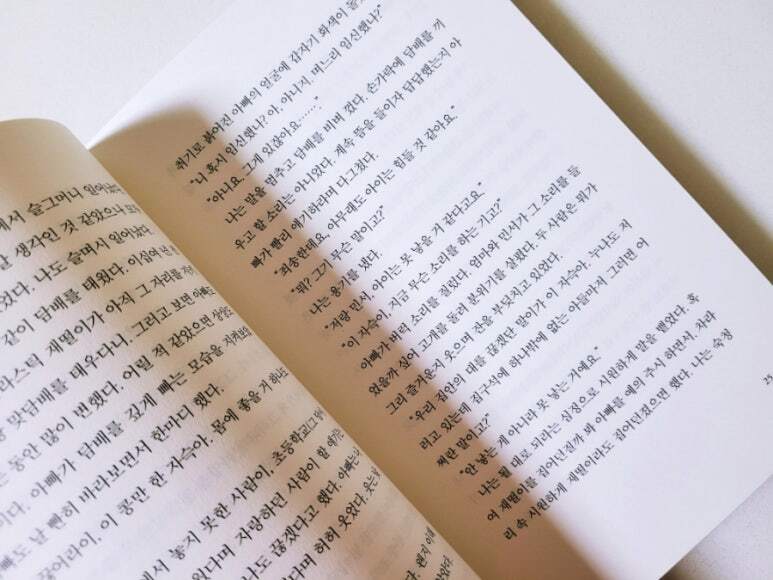 에서 슬그머니 일어났
날 생각인 것 같았으나
었다. 나도 슬며시 일어났다.
같이 담배를 태웠다.
라스틱 재떨이가 아직 그 자리를
랑 맞담배를 태우다니. 그리고 보면 아빠도
는 동안 많이 변했다. 어릴 적 같았으면
이다. 아빠가 담배를 깊게 빠는 모습을 지켜보
빠도 날 빤히 바라보면서 한마디 했다.
끊어라이, 이 콩만 한 자슥아. 몸에 좋을 거 하나도
에서 놓지 못한 사람이, 초등학교
있다며 자랑하던 사람이 할 얘기
나도 끊겠다고 했다. 아빠는
다며 허허 웃었다. 웃는
취기로 붉어진 아빠의 얼굴에 갑자기 화색이 돌
“니 혹시 임신했나? 아, 아니지. 며느리 임신했나?”
“아니요. 그게 있잖아요…….”
나는 말을 멈추고 담배를 비벼 껐다. 손가락에 담배를 끼
우고 할 소리는 아니었다. 계속 뜸을 들이자 답답했는지 아
빠가 빨리 얘기하라며 다그쳤다.
“죄송한데요. 아무래도 아이는 힘들 것 같아요.”
“뭐? 그기 무슨 말이고?”
나는 용기를 냈다.
“저랑 민서, 아이는 못 낳을 거 같다고요.”
“이 자슥이, 지금 무슨 소리를 하는 기고?”
아빠가 버럭 소리를 질렀다. 엄마와 민서가 그 소리를 들
었을까 싶어 고개를 돌려 분위기를 살폈다. 두 사람은 뭐가
그리 즐거운지 웃으며 잔을 부딪치고 있었다.
“우리 집안의 대를 끊겠단 말이가 이 자슥아. 누나도 저
러고 있는데 김구석에 하나밖에 없는 아들마저 그러면 어
쩌란 말이고?”
“안 낳는 게 아니라 못 낳는 거예요.”
나는 될 대로 되라는 심정으로 시원하게 말을 뱉었다. 혹
여 재떨이를 집어던질까 봐 아빠를 예의 주시 하면서. 차라
리 속 시원하게 재떨이라도 집어던졌으면 했다. 나는 숙청
25